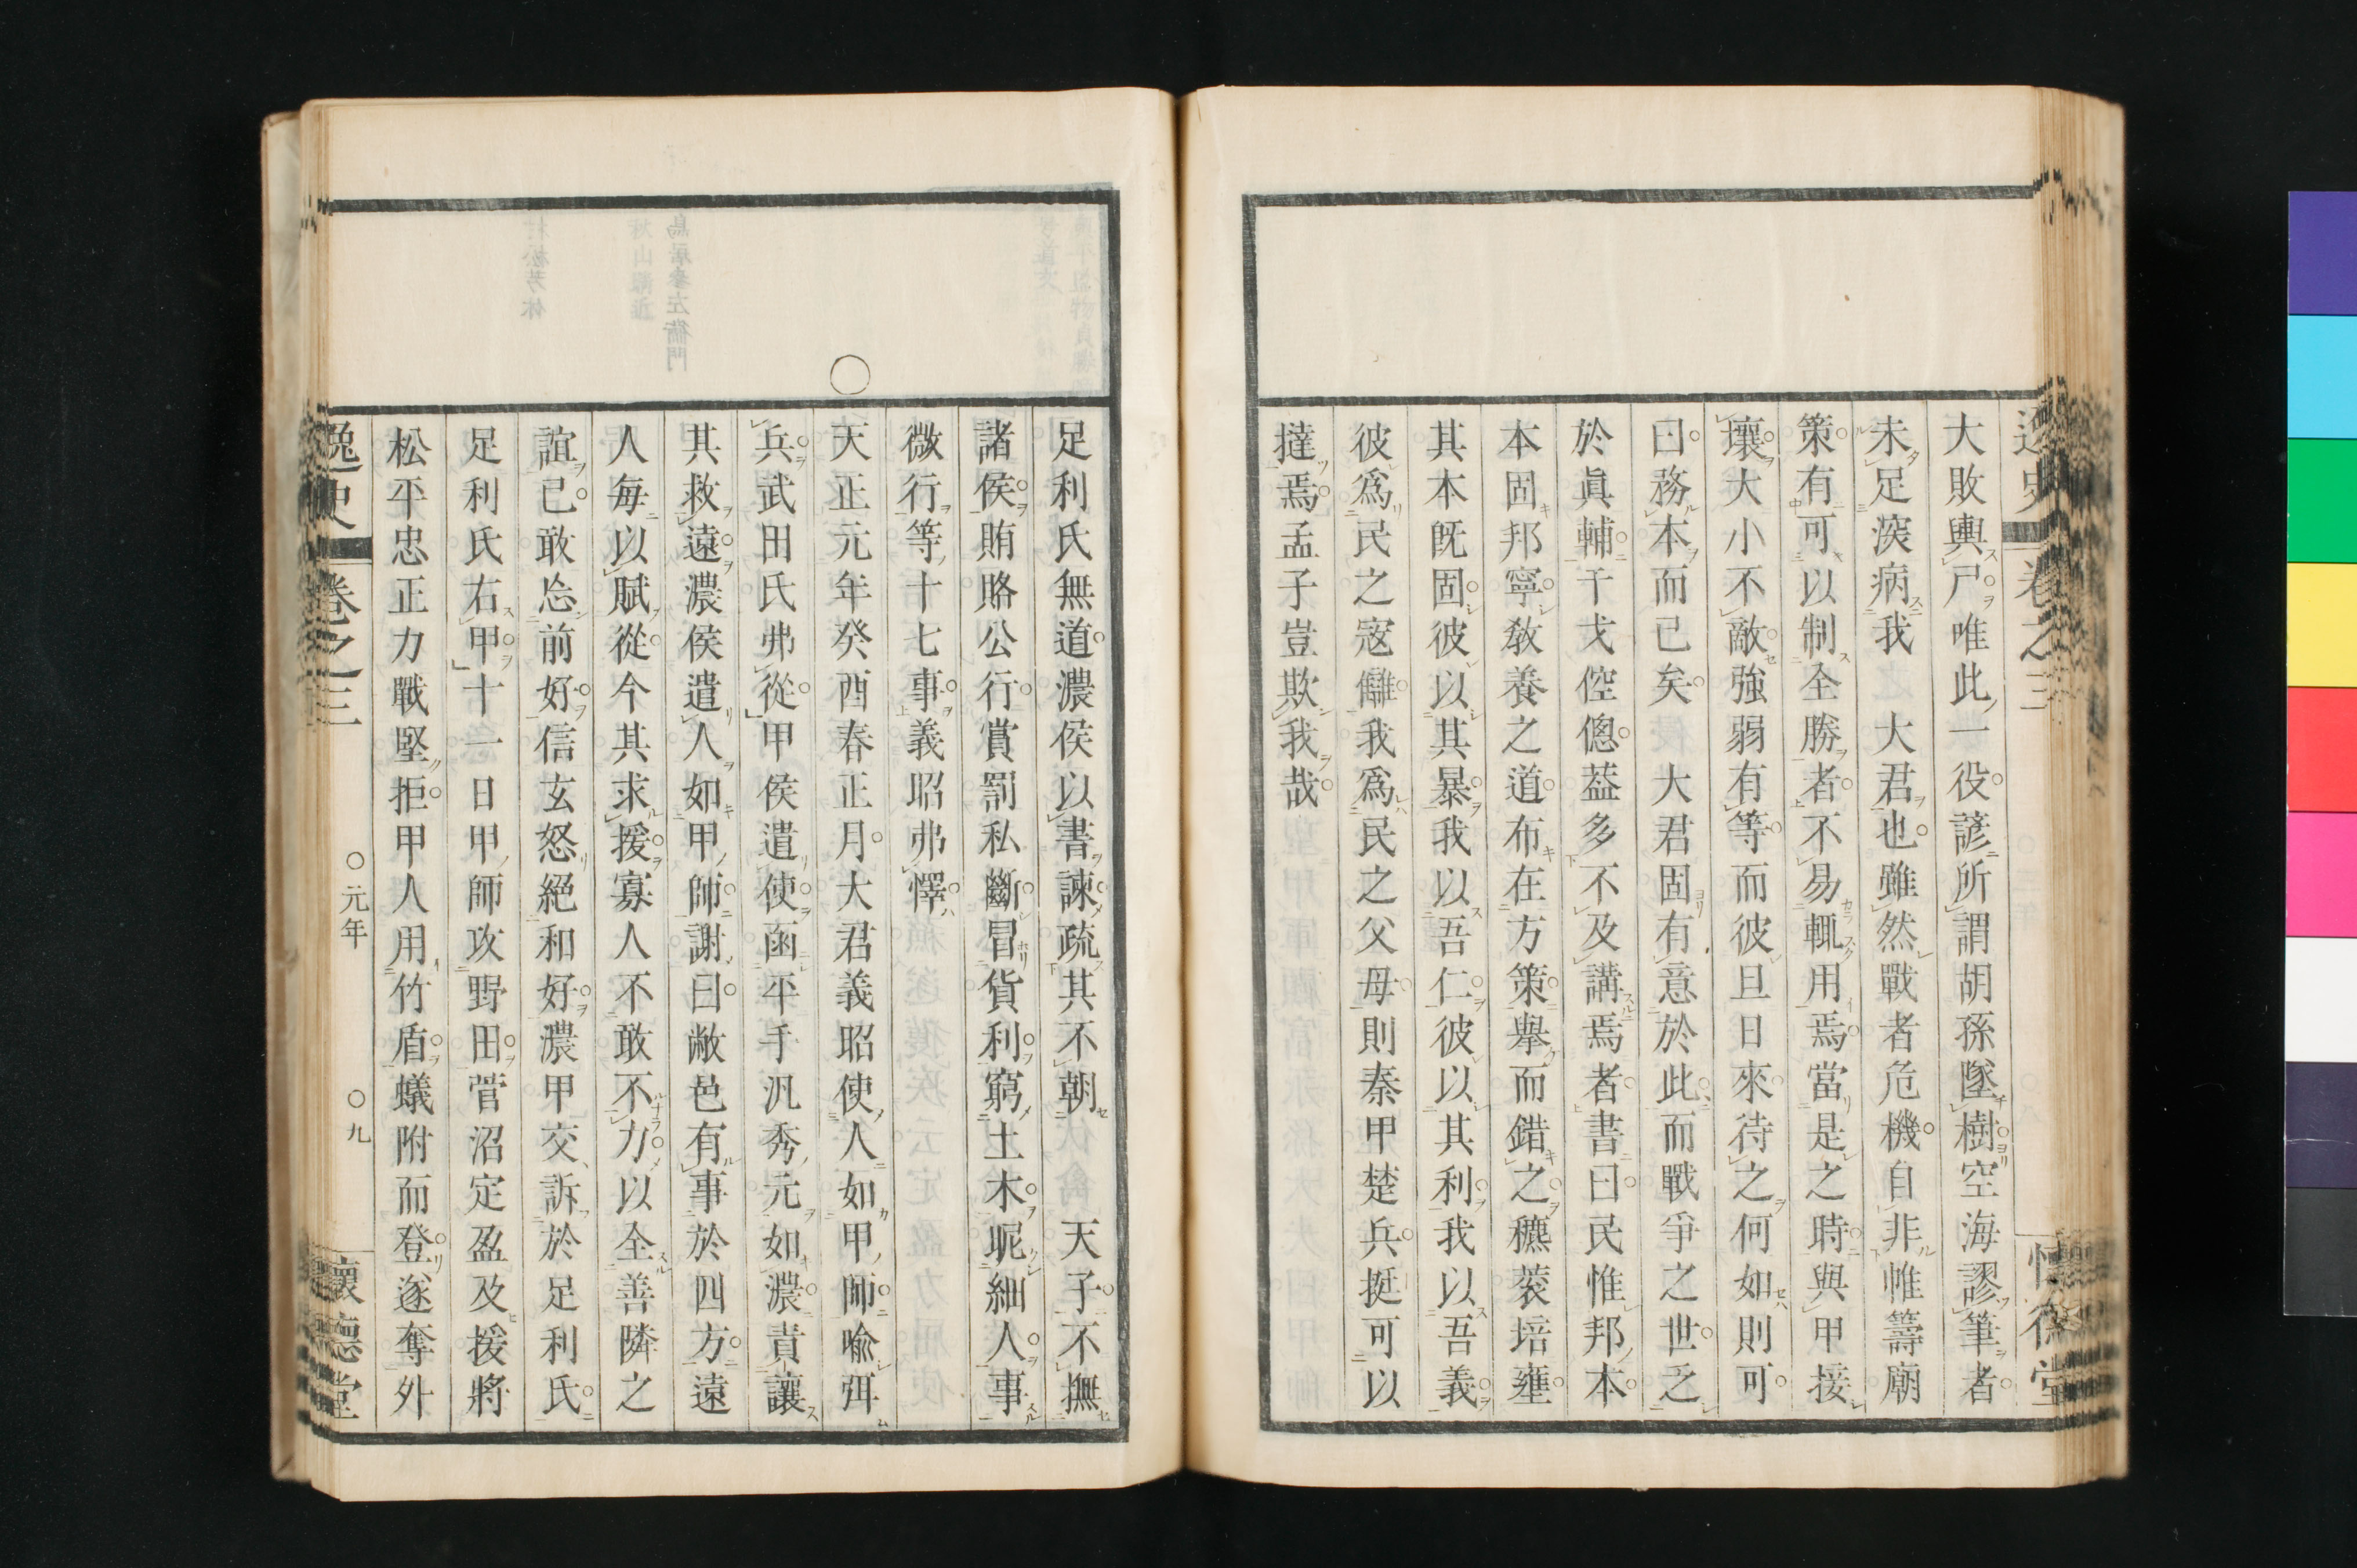 逸史 卷之三 懷德堂
大敗輿尸唯此一役諺所謂胡孫墜樹空海謬筆者
未足深病我 大君也雖然戰者危機自非帷籌廟
策有可以制全勝者不易輒用焉當是之時與甲接
壤大小不敵強弱有等而彼旦日來待之何如則可
曰務本而已矣 大君固有意於此而戰爭之世乏
於眞輔干戈倥傯葢多不及講焉者書曰民惟邦本
本固邦寧敎養之道布在方策擧而錯之穮蓘培壅
其本既固彼以其暴我以吾仁彼以其利我以吾義
彼爲民之寇讎我爲民之父母則秦甲楚兵挺可以
撻焉孟子豈欺我哉
足利氏無道濃侯以書諫疏其不朝 天子不撫
諸侯賄賂公行賞罰私斷冒貨利窮土木昵細人事
微行等十七事義昭弗懌
○
天正元年癸酉春正月大君義昭使人如甲師喩弭
兵武田氏弗從甲侯遣使函平手汎秀元如濃責讓
其救遠濃侯遣人如甲師謝曰敝邑有事於四方遠
人每以賦從今其求援寡人不敢不力以全善隣之
誼已敢忘前好信玄怒絕和好濃甲交訴於足利氏
足利氏右甲十一日甲師攻野田菅沼定盈及援將
松平忠正力戰堅拒甲人用竹盾蟻附而登遂奪外
逸史 卷之三 ○元年 ○九 懷德堂